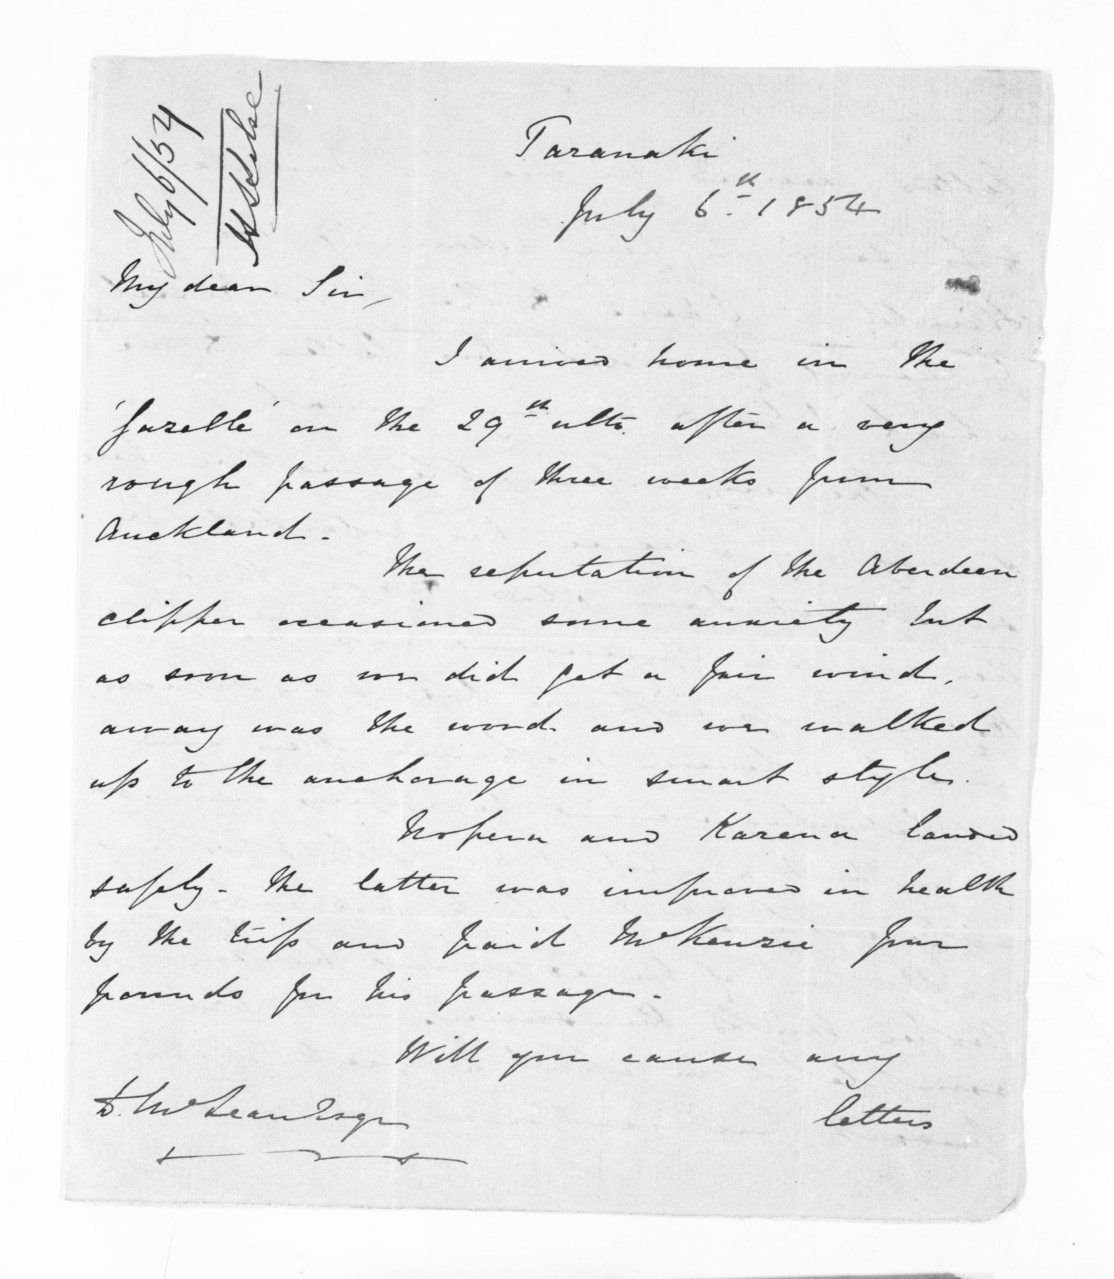 July 6/54
H Halse
Taranaki
July 6th. 1854
My dear Sir,
I arrived home in the
'Gazelle' on the 29th ulto. after a very
rough passage of three weeks from
Auckland.
The reputation of the Aberdeen
clipper occasioned some anxiety but
as soon as we did get a fair wind,
away was the word and we walked
up to the anchorage in smart style.
Nopera and Karena landed
safely. The latter was improved in health
by the trip and paid McKenzie four
pounds for his passage.
Will you cause any
D. McLean Esqr
letters